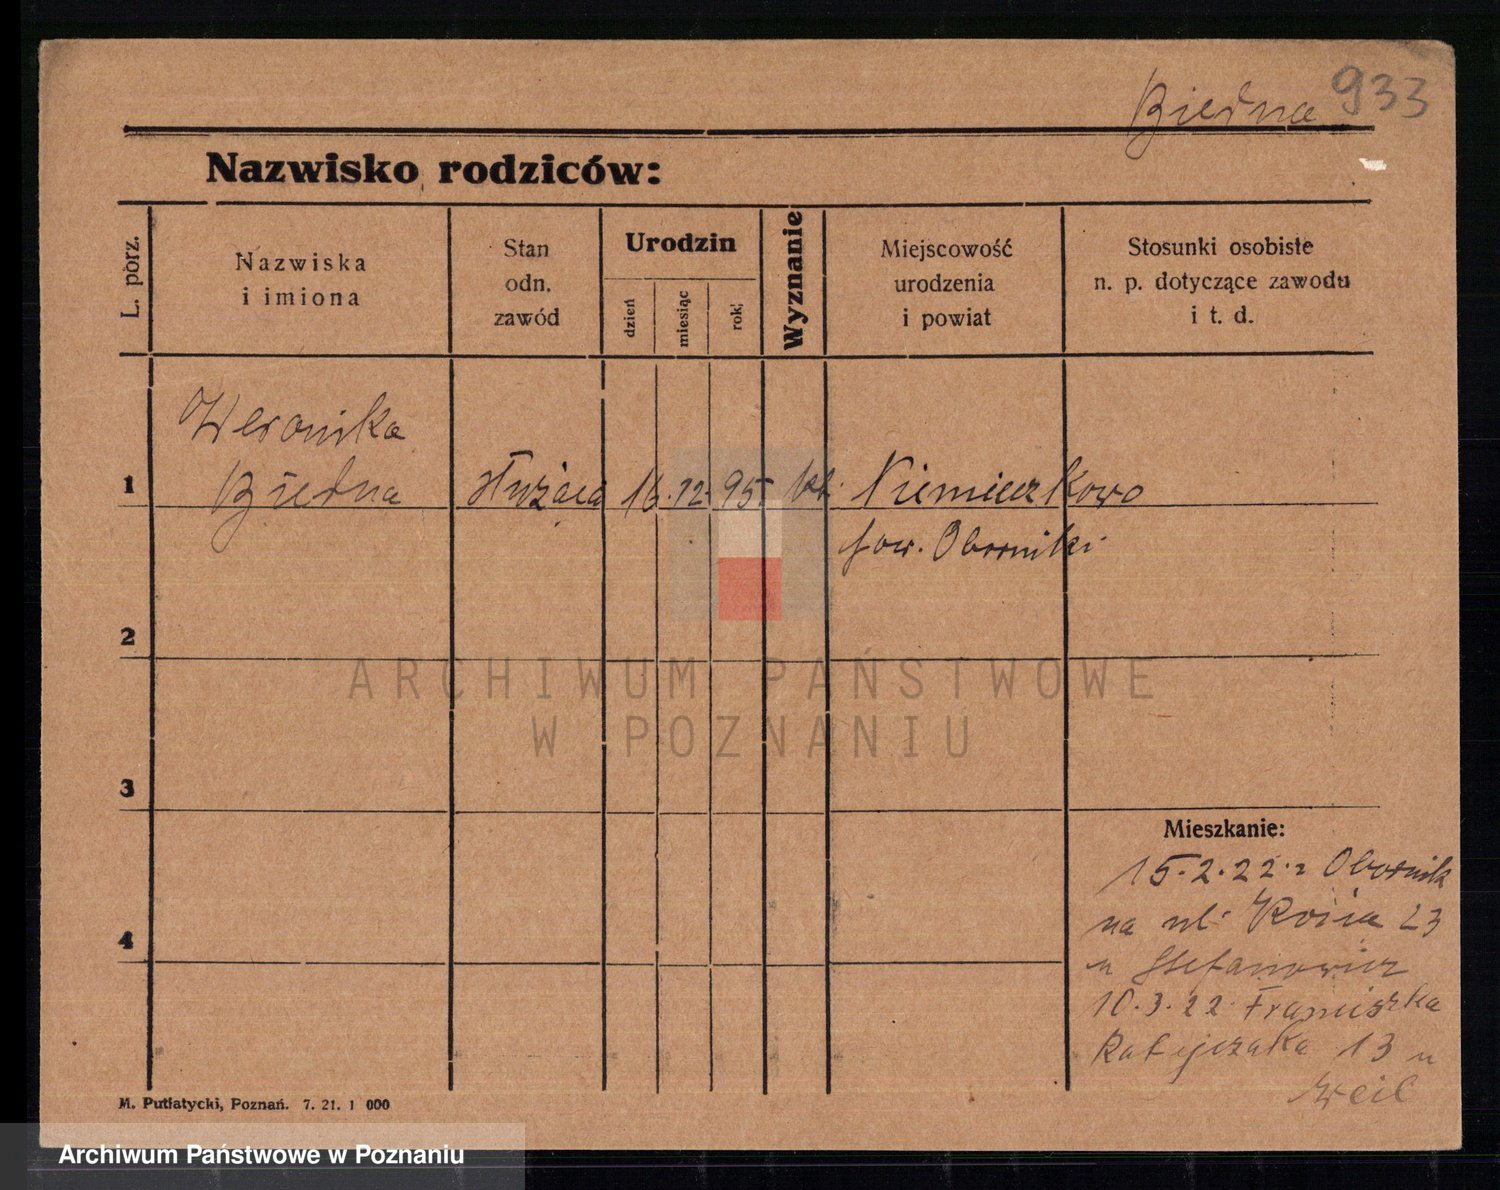 Biedna 933
Nazwisko rodziców:
L. porz.
Nazwiska
i imiona
Stan
odn.
zawód
Urodzin
dzień
miesiąc
rok
Wyznanie
Miejscowość
urodzenia
i powiat
Stosunki osobiste
n. p. dotyczące zawodu
i t. d.
Weronika
1 Biedna służąca 16. 12. 95. kt. Niemieczkowo
pow. Oborniki
2
ARCHIWUM PAŃSTWOWE
W POZNANIU
3
Mieszkanie:
15.2.22. z Obornik
na ul. 23
4
u Stefanowicz
10.3.22. Franciszka
Ratajczaka 13 u
Weil
M. Putiatycki, Poznań. 7. 21. 1 000
Archiwum Państwowe w Poznaniu